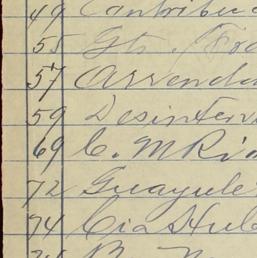 49 Contribu
55 Gts.
57 Arrenda
59 Desinter
69 C. M Ri
72 Guayule
74 Cia Hul